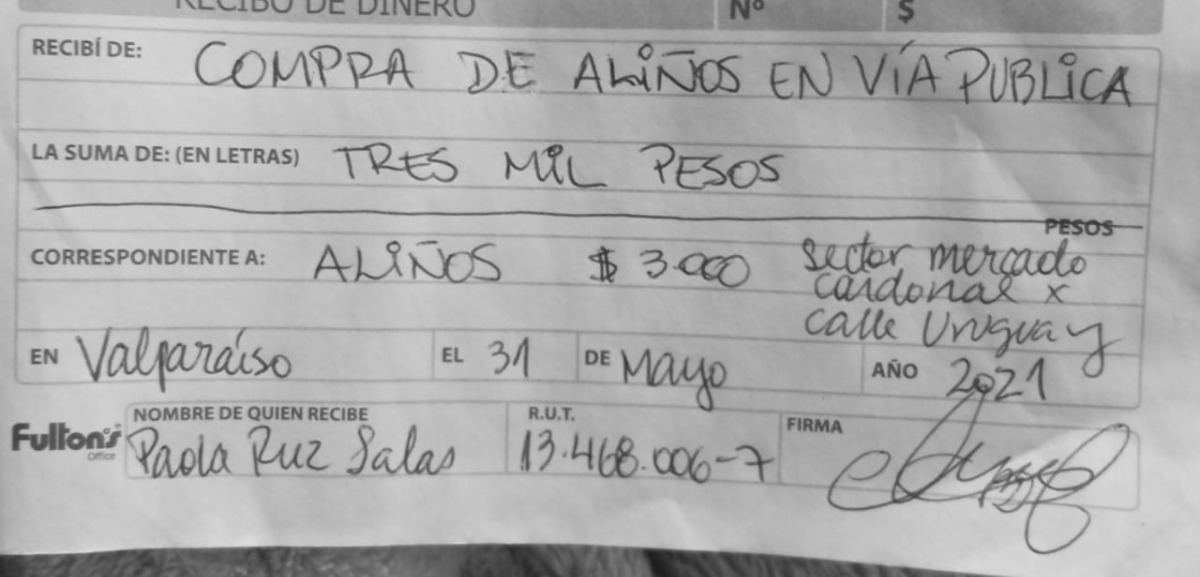 RECIBO DE DINERO Nº $
RECIBÍ DE: COMPRA DE ALIÑOS EN VÍA PUBLICA
LA SUMA DE: (EN LETRAS) TRES MIL PESOS
PESOS
CORRESPONDIENTE A: ALIÑOS $ 3.000 sector mercado
cardonal x
calle Uruguay
EN Valparaíso EL 31 DE Mayo AÑO 2021
NOMBRE DE QUIEN RECIBE R.U.T. FIRMA
Fulton's Office Paola Ruz Salas 13.468.006-7